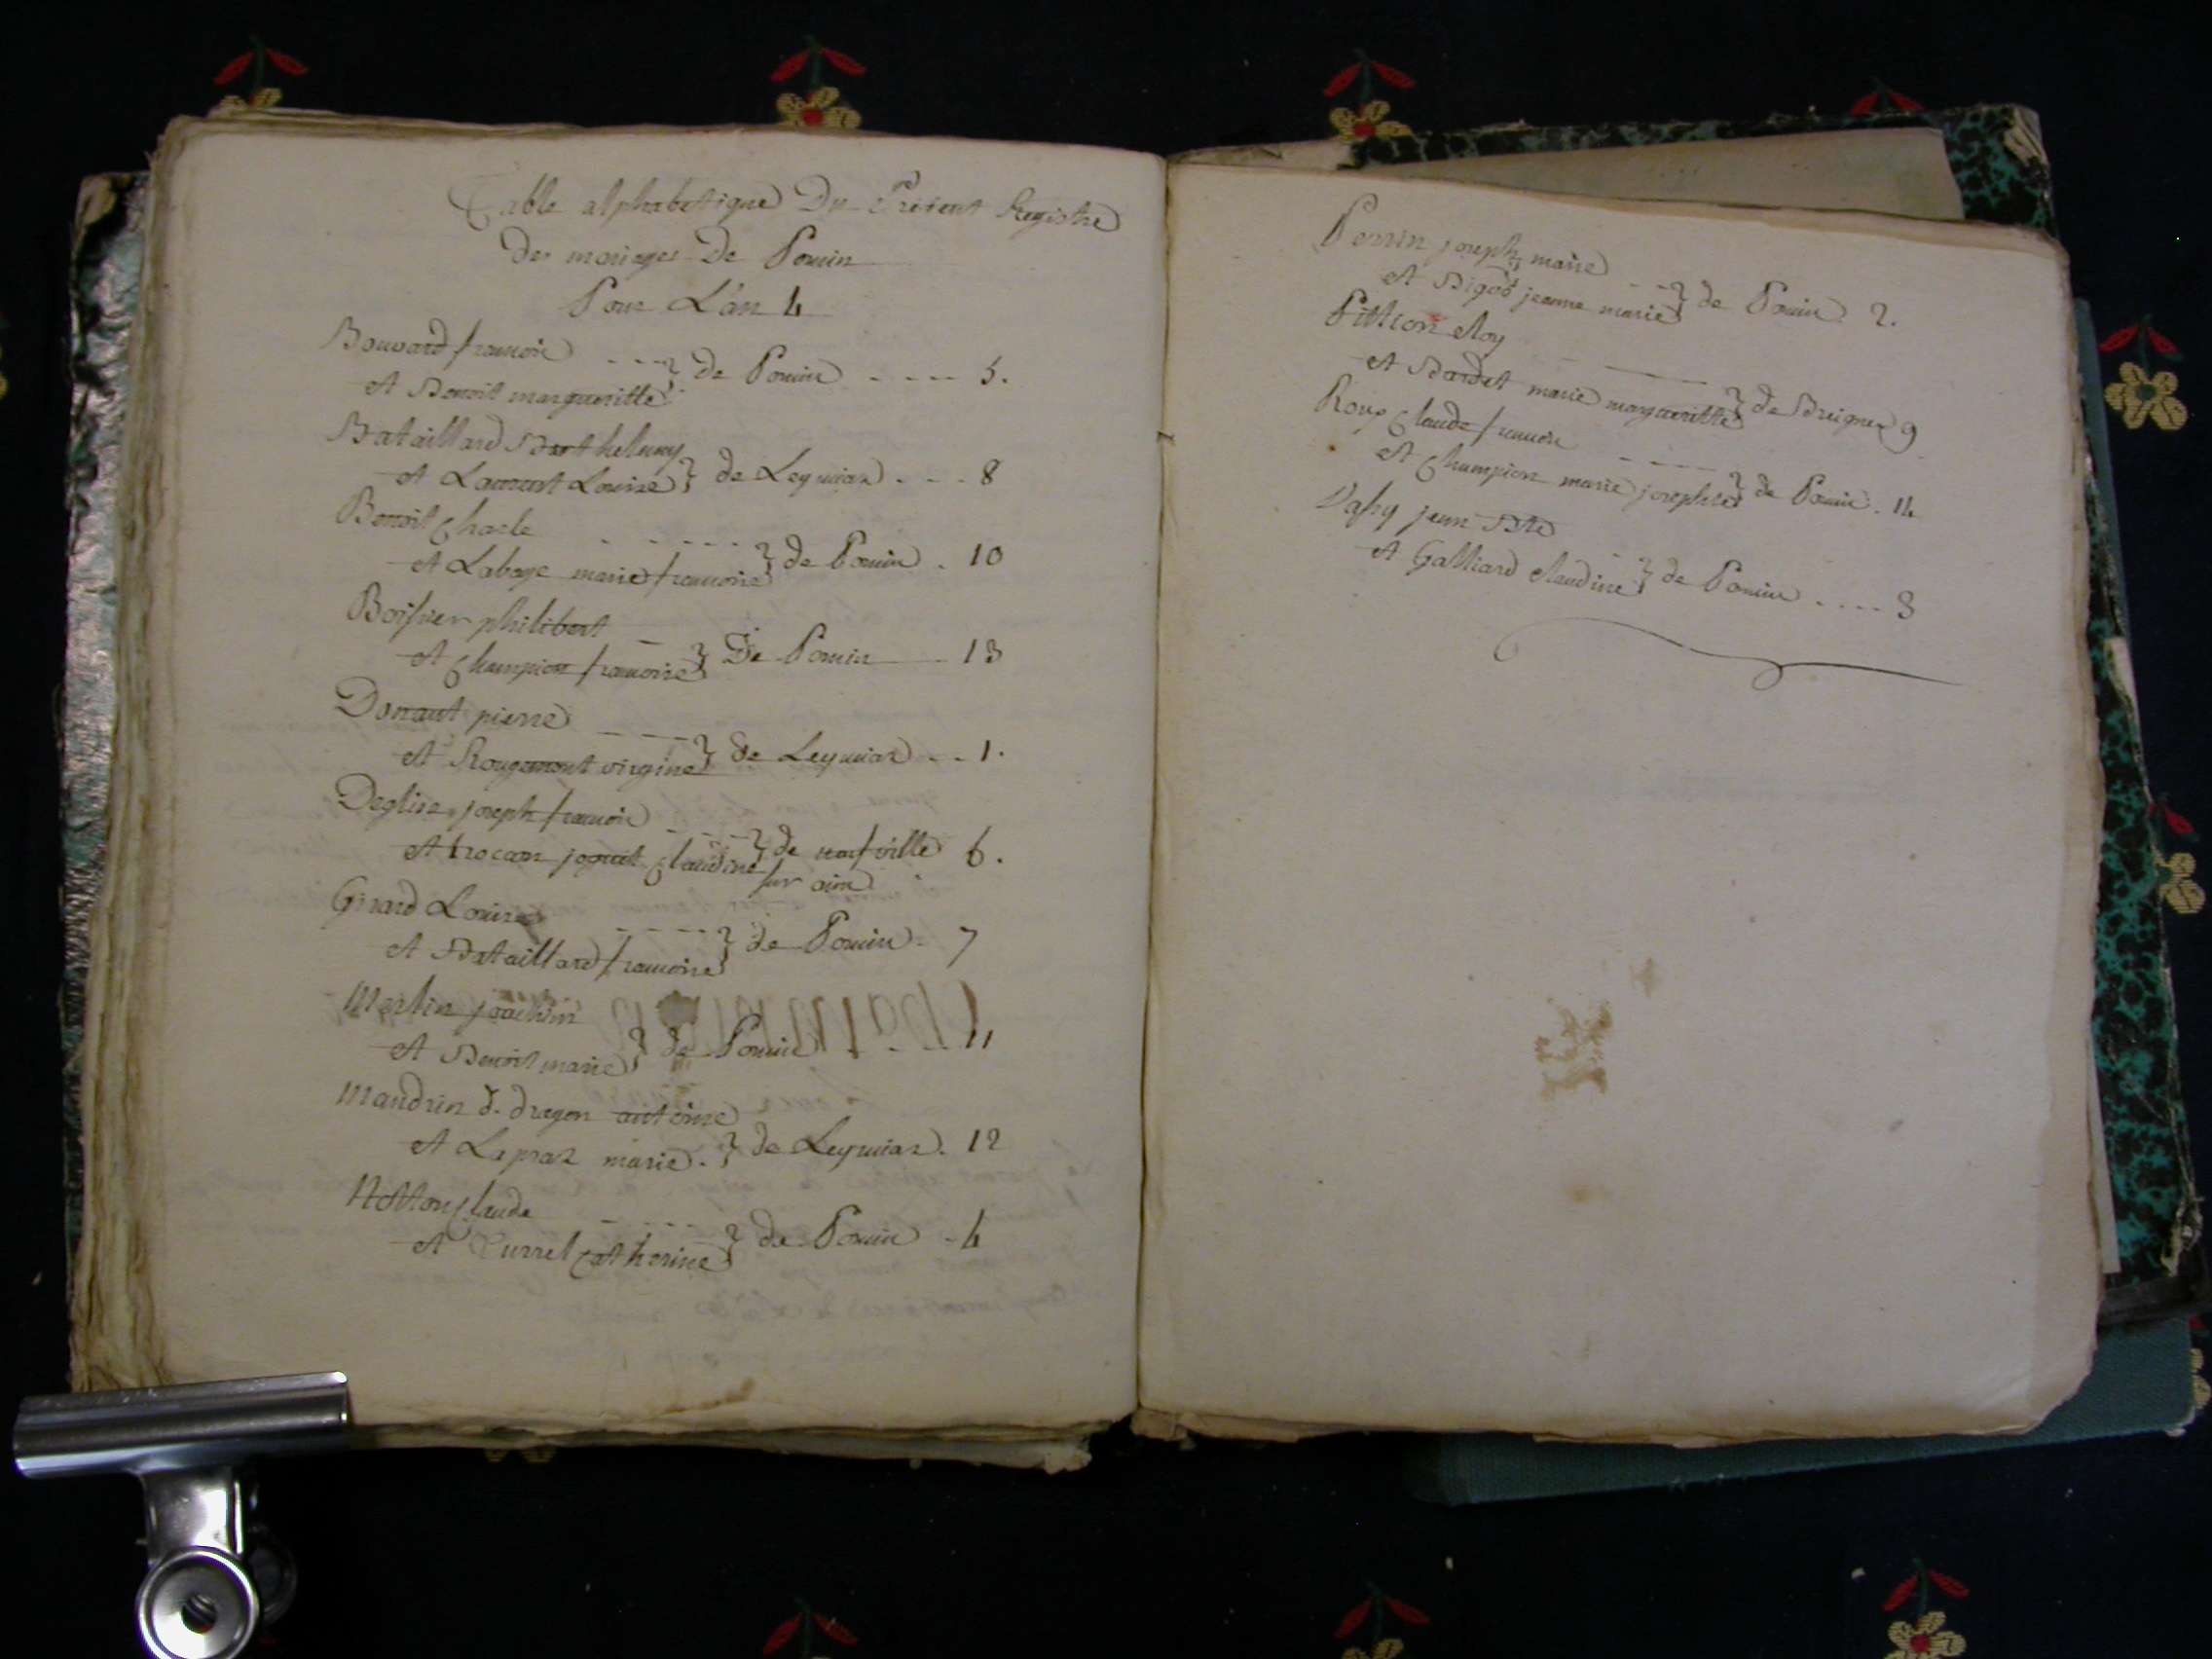 Table alphabetique Du Present Registre
des mariages De Poncin
Pour L'an 4
Bouvard francois
et Benoit margueritte } de Poncin .... 5.
Bataillard Barthelemy
et Laurent Louise } de Leymiaz ... 8
Benoit Charle
et Labaye marie francoise } de Poncin . 10
Boissier philibert
et Champion francoise } De Poncin 13
Donaut pierre
et Rougemont virgine } de Leymiaz .. 1.
Deglise joseph francois
et trocan Claudine } de neufville 6.
sur ain
Girard Louis
et Bataillard francoise } de Poncin . 7
Merlin joachin
et Benoit marie } de Poncin 11
Mandrin d. dragon antoine
et Lapraz marie . } de Leymiaz . 12
Notton Claude
et Curret Catherine } de Poncin . 4
Perrin joseph marie
et Bigot jeanne marie } de Poncin 2.
Pittion eloy
et Bardet marie margueritte } de Breignes 9
Roup Claude francois
et Champion marie josephte } de Poncin . 14
jean Bte
et Galliard claudine } de Poncin .... 3